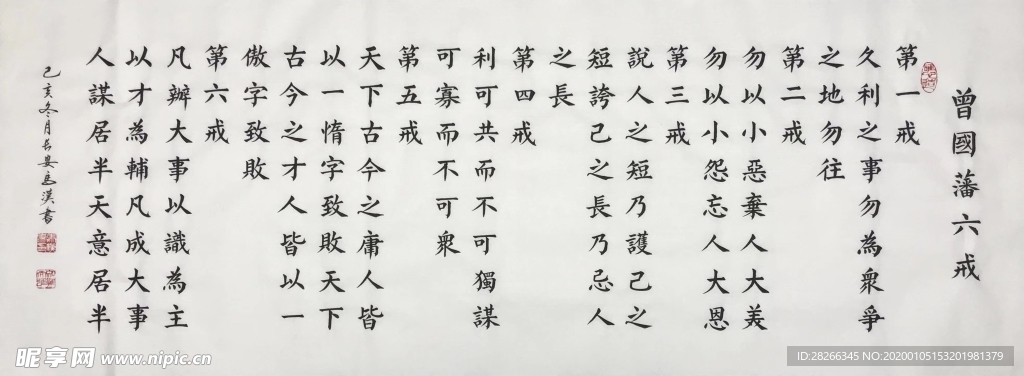 曾國藩六戒
第一戒
久利之事勿為衆爭
之地勿往
第二戒
勿以小惡棄人大美
勿以小怨忘人大恩
第三戒
說人之短乃護己之
短誇己之長乃忌人
之長
第四戒
利可共而不可獨謀
可寡而不可衆
第五戒
天下古今之庸人皆
以一惰字致敗天下
古今之才人皆以一
傲字致敗
第六戒
凡辦大事以識為主
以才為輔凡成大事
人謀居半天意居半
己亥冬月長安馬漢書
昵享网 www.nipic.cn
ID:28266345 NO:20200105153201981379